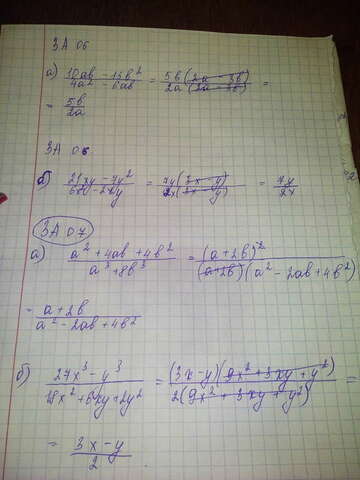 3A 06
а) (10ab - 15b²)/(4a² - 6ab) = (5b(2a - 3b))/(2a(2a - 3b)) =
= 5b/2a
3A 06
б) (21xy - 7y²)/(6x² - 2xy) = (7y(3x - y))/(2x(3x - y)) = 7y/2x
3A 07
а) (a² + 4ab + 4b²)/(a³ + 8b³) = (a + 2b)²/((a + 2b)(a² - 2ab + 4b²)
= (a + 2b)/(a² - 2ab + 4b²)
б) (27x³ - y³)/(18x² + 6xy + 2y²) = ((3x - y)(9x² + 3xy + y²))/(2(9x² + 3xy + y²)) =
= (3x - y)/2